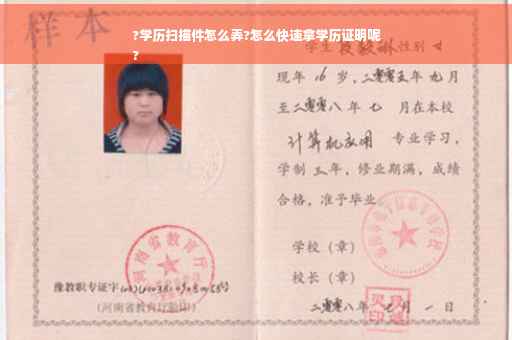 样本
?学历扫描件怎么弄?怎么快速拿学历证明呢
?
学生 性别 女
现年 16 岁，二零零五年 九月
至二零零八年 七 月在本校
计算机应用 专业学习，
学制 三年，修业期满，成绩
合格，准予毕业
学校（章）
校长（章）
二零零八年 月 一日
河南省教育厅
豫教职专证字
（河南省教育厅验印）